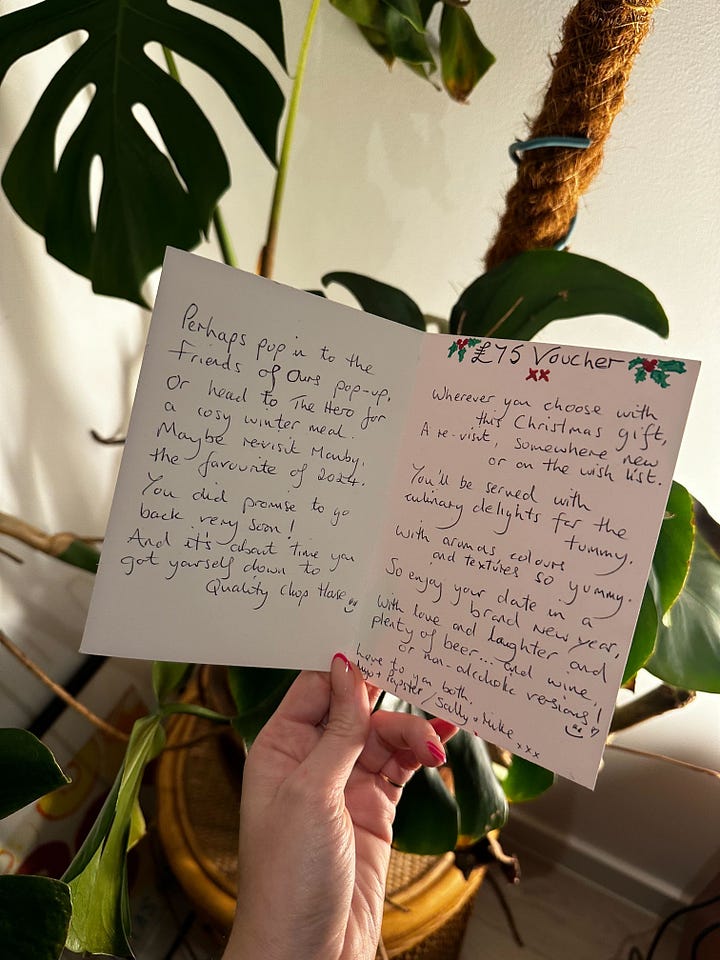 Perhaps pop in to the
Friends of Ours pop-up.
Or head to The Hero for
a cosy winter meal.
Maybe re-visit Manby.
the favourite of 2024.
You did promise to go
back very soon!
And it's about time you
got yourself down to
Quality Chop House
£75 Voucher
xx
Wherever you choose with
this Christmas gift,
A re-visit, somewhere new
or on the wish list.
You'll be served with
culinary delights for the
tummy.
With aromas colours
and textures so yummy.
So enjoy your date in a
brand new year,
With love and laughter and
plenty of beer... and wine,
or non-alcoholic versions!
Love to you both.
+ Papster / Sally + Mike xxx